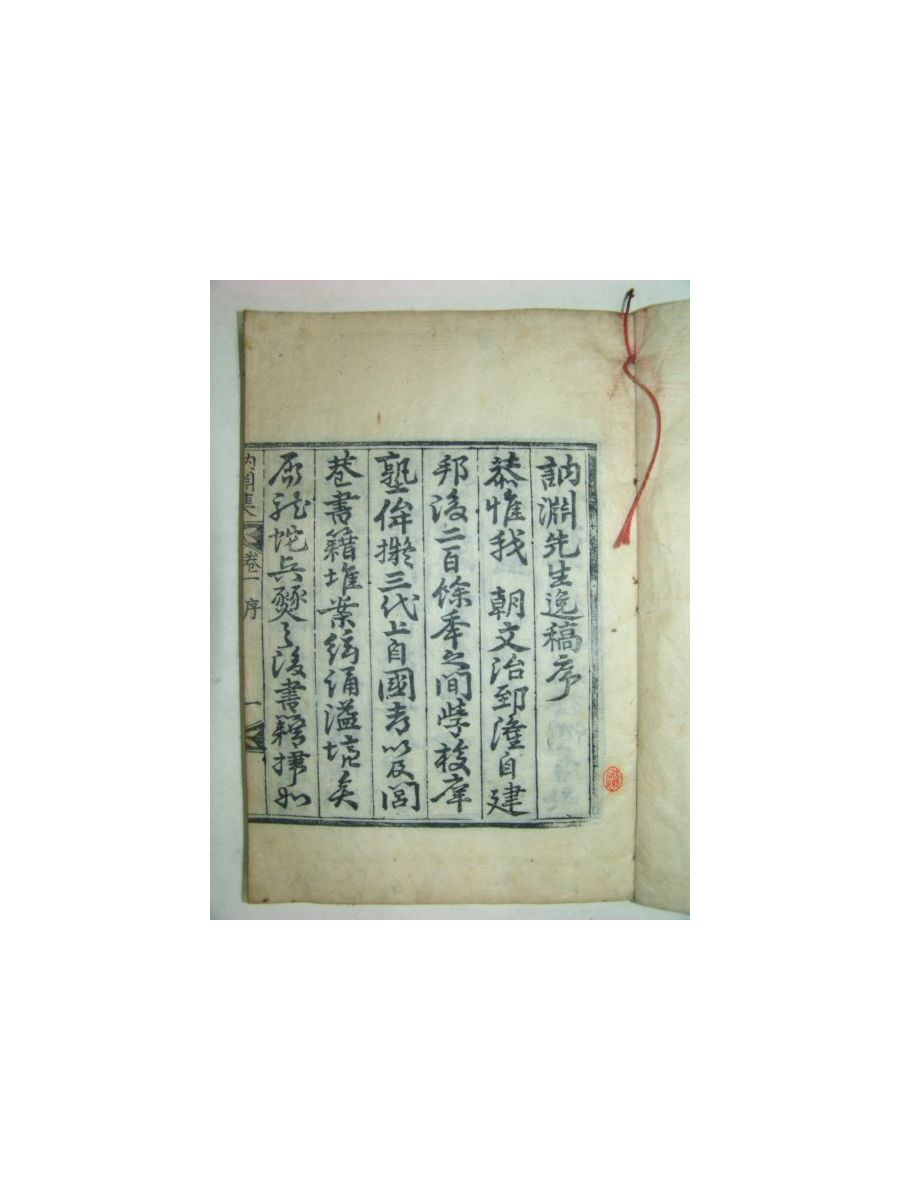 訥淵先生逸稿序
恭惟我 朝文治郅隆自建
邦後二百餘年之間學校庠
塾侔擬三代上自國都以及閭
巷書籍堆案絃誦溢境矣
龍蛇兵燹之後書籍掃如
訥淵集 卷一 序 一